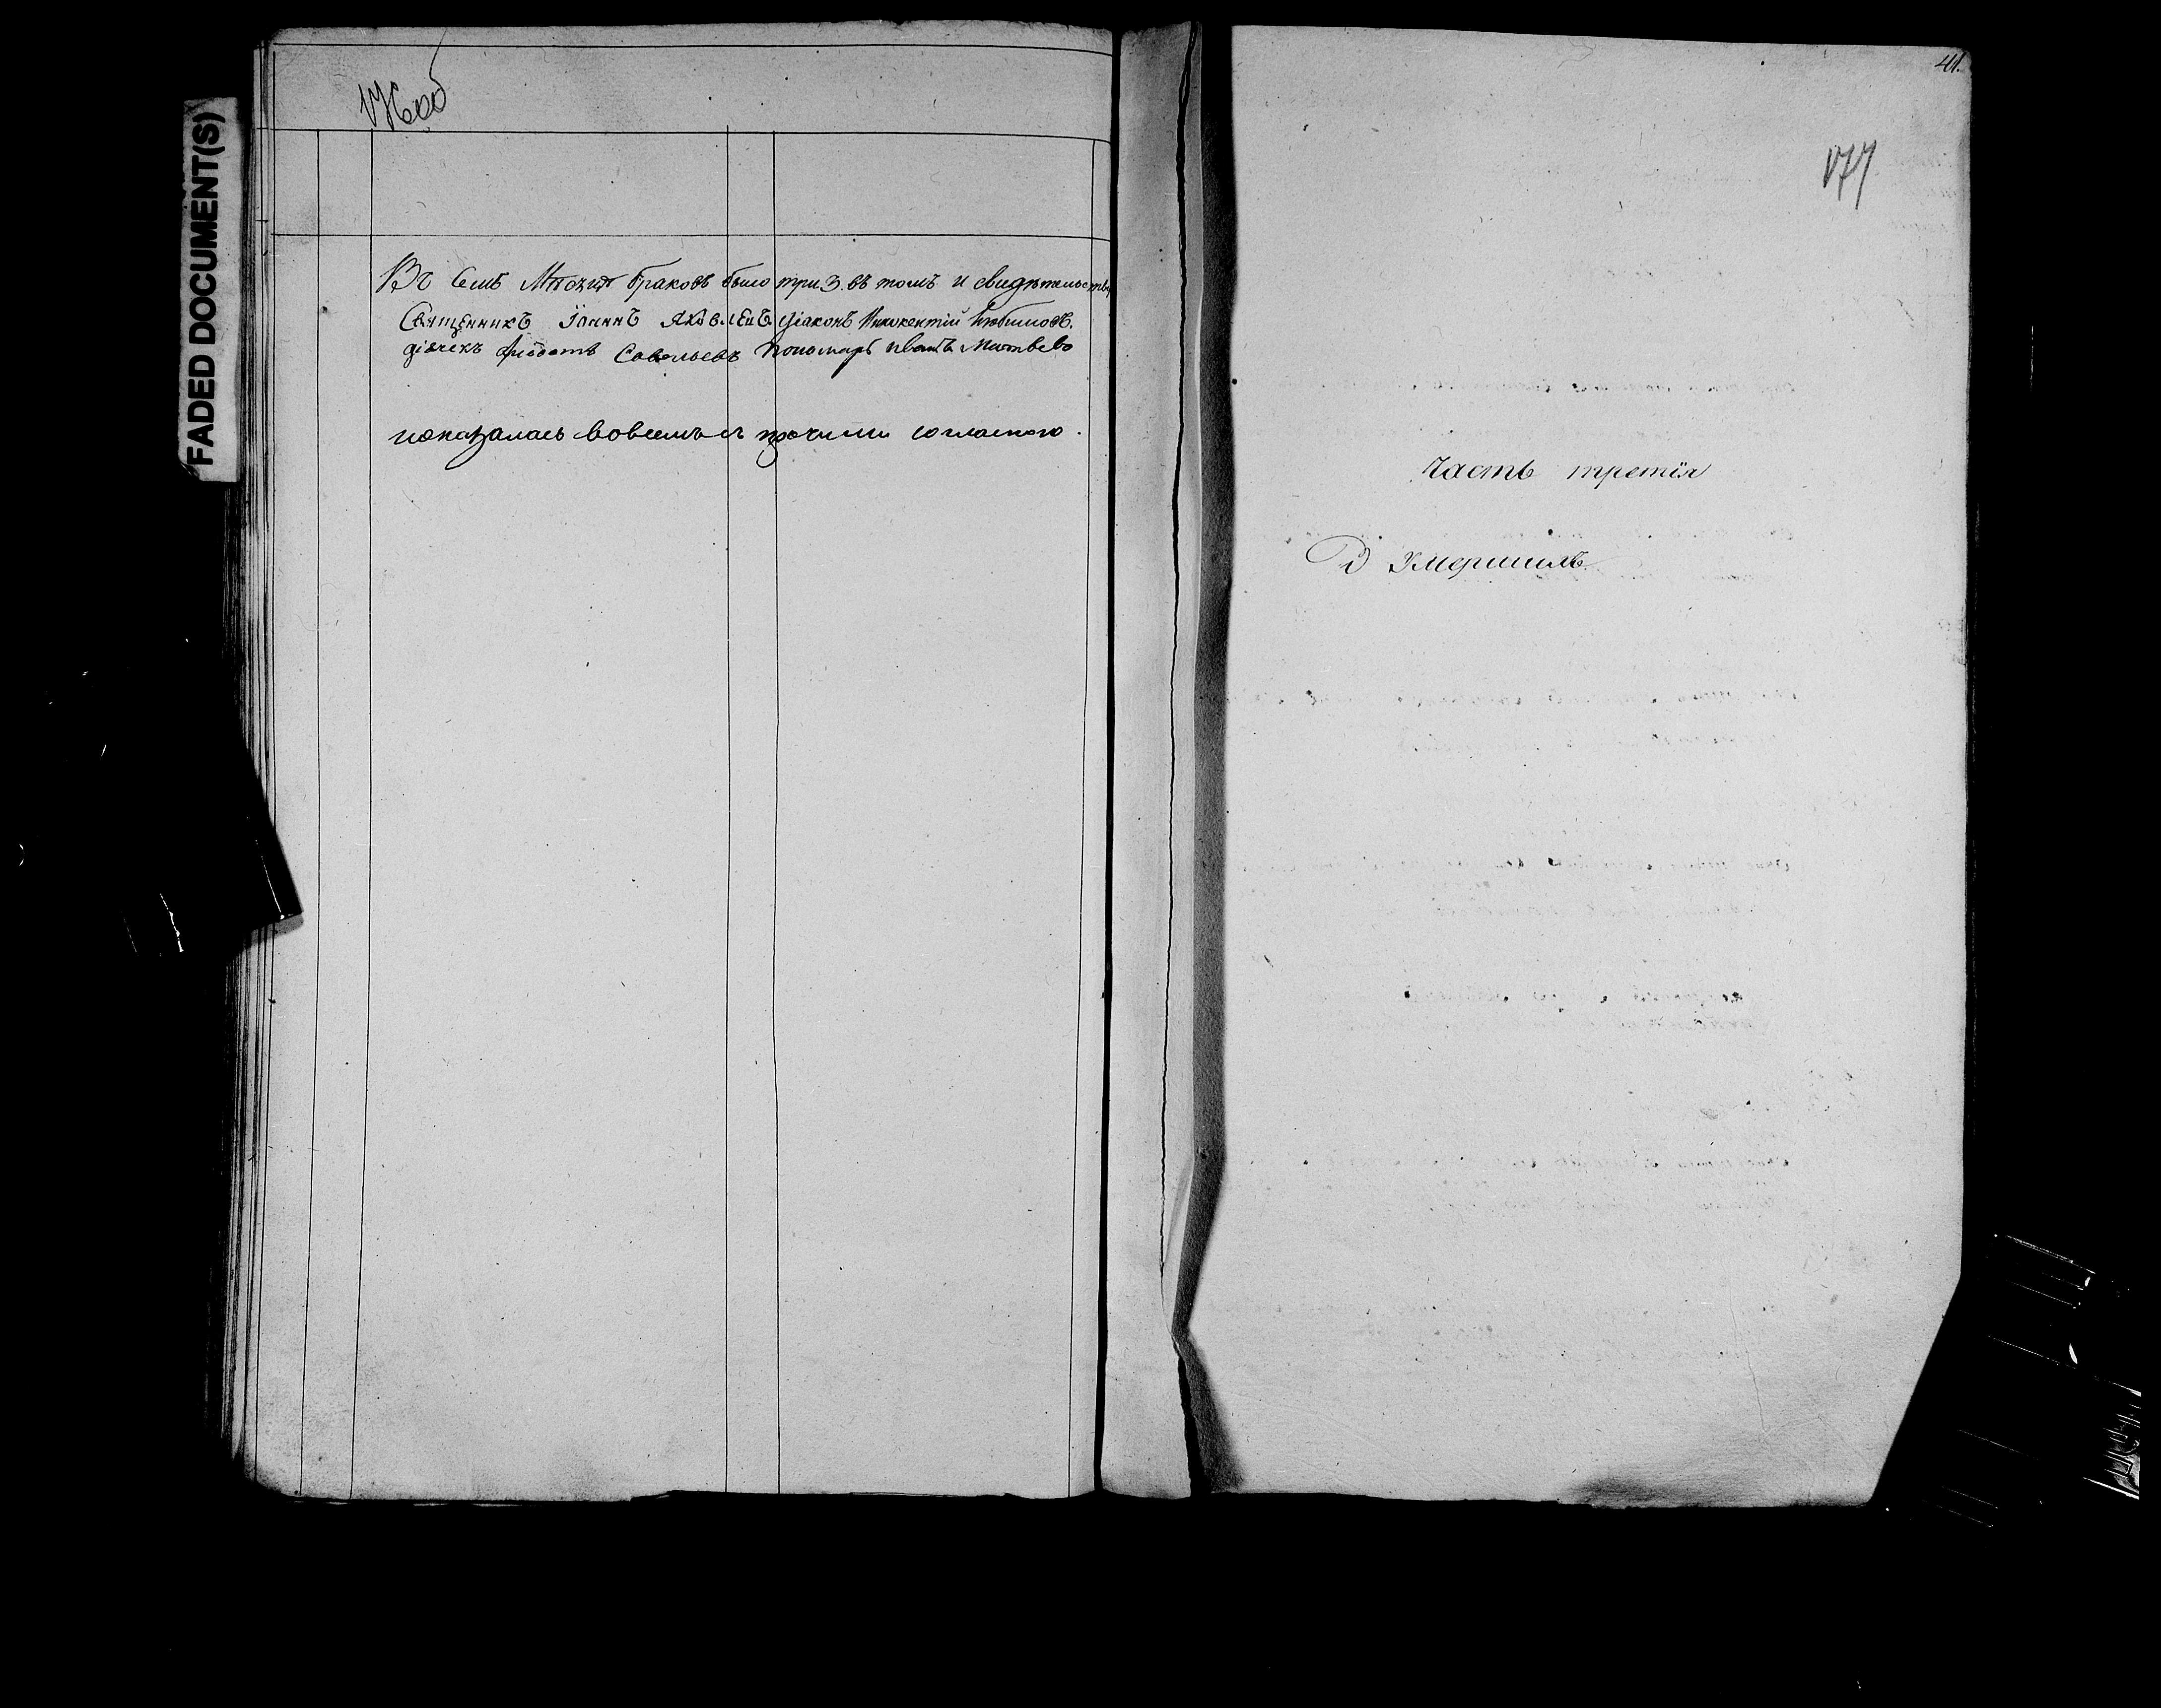 176 об
FADED DOCUMENT(S)
Въ Семъ Мѣсяцѣ браковъ было три 3. въ томъ и свидѣтельств
Священникъ Іоаннъ Діаконъ Иннокентій Любимовъ.
дїячекъ Ѳеодотъ Савельевъ Пономарь Иванъ Матвѣево
показалась вовсемъ съ прочими согласною.
41.
177
Часть третїя
О Умершихъ